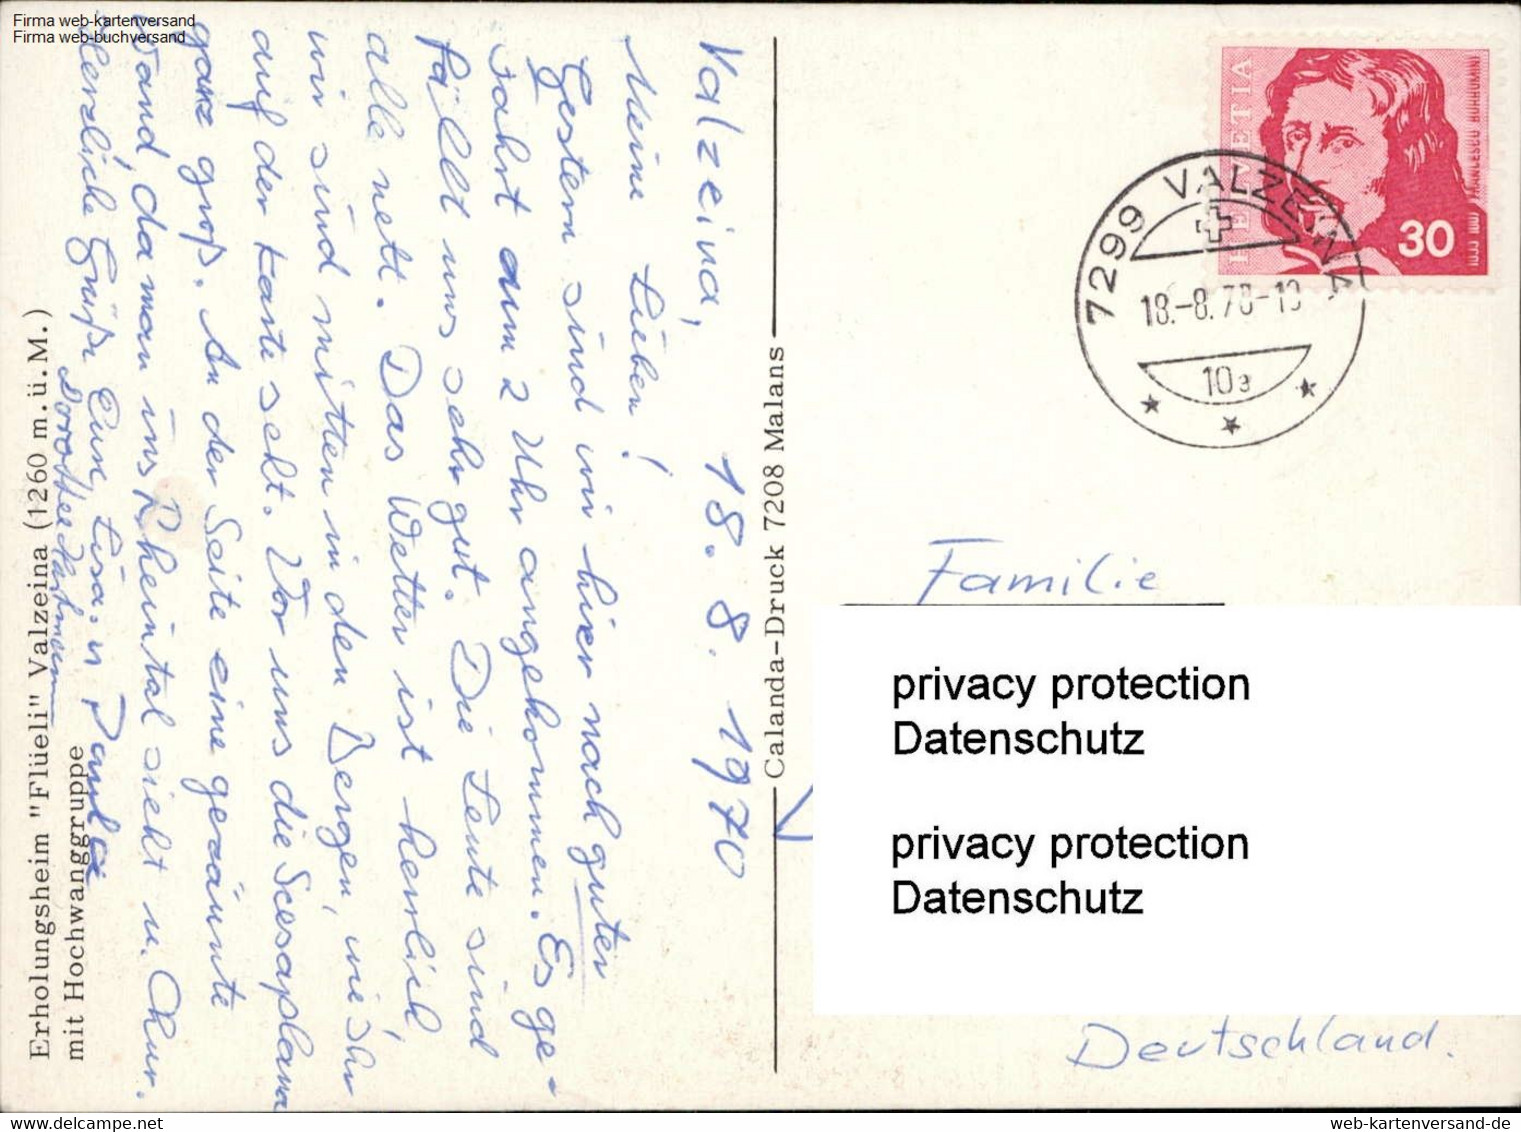 Firma web-kartenversand
Firma web-buchversand
Valzeina, 18. 8. 1970
Meine Lieben!
Gestern sind wir hier nach guter
Fahrt um 2 Uhr angekommen. Es ge-
fällt uns sehr gut. Die Leute sind
alle nett. Das Wetter ist herrlich,
wir sind mitten in den Bergen, wie Ihr
auf der Karte seht. Vor uns die Scesaplana
ganz groß. An der Seite eine geräumte
Wand, da man ins Rheintal sieht u. Chur.
Herzliche Grüße Eure Lisa. u Paula
Dorothee
Erholungsheim "Flüeli" Valzeina (1260 m.ü.M.)
mit Hochwanggruppe
Calanda-Druck 7208 Malans
HELVETIA
FRANCESCO BORROMINI
30
7299 VALZEINA
18.-8.70-10
10a
Familie
privacy protection
Datenschutz
privacy protection
Datenschutz
Deutschland.
web-kartenversand-de